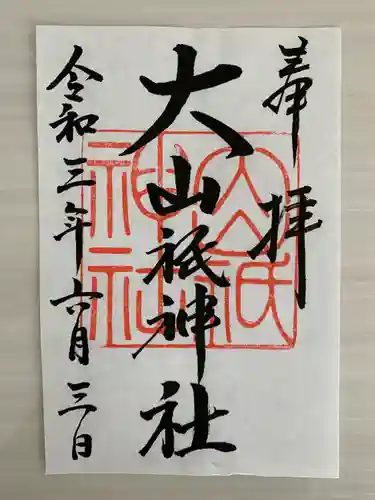 奉拝
大山祇神社
令和三年六月三日
大山祇
神社